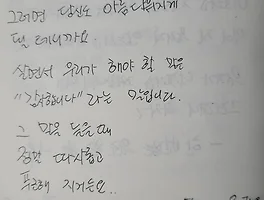 그러면 당신도 아름다워지게
될 테니까요.
살면서 우리가 해야 할 말은
"감사합니다" 라는 말입니다.
그 말을 들을 때
정말 따사롭고
푸근해 지거든요..